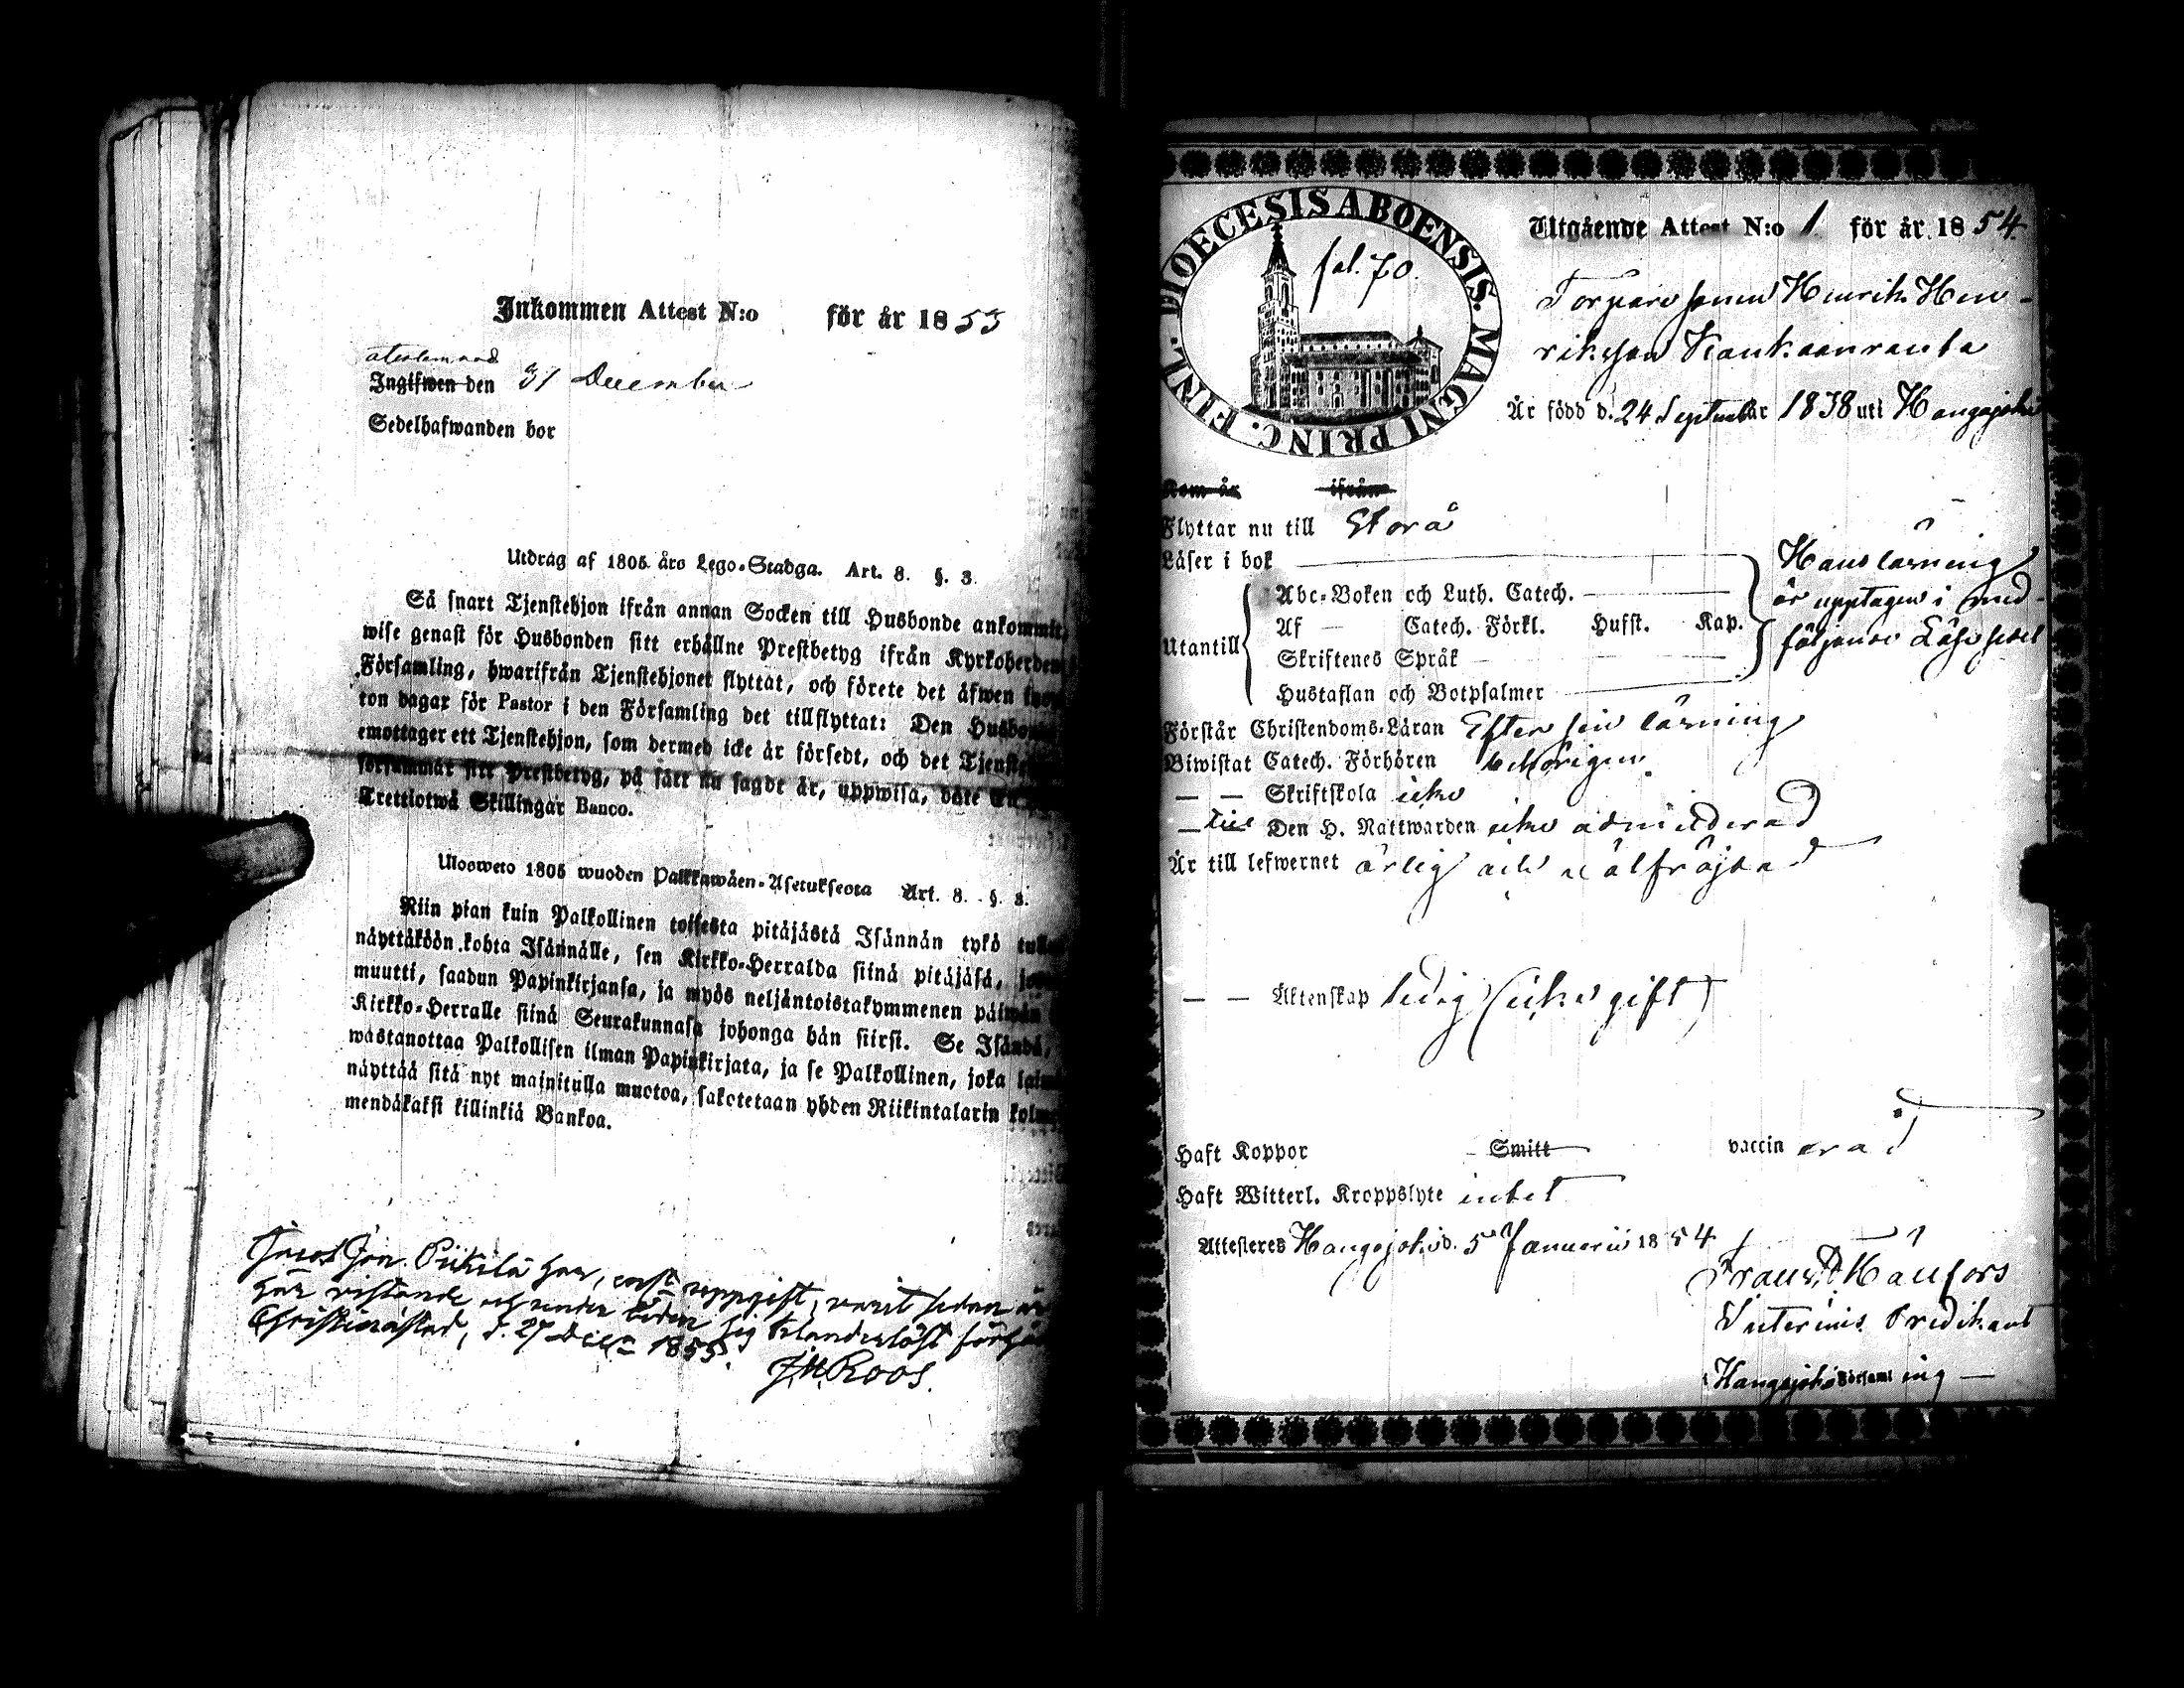 Inkommen Attest N:o för år 1853
återlemnad
Ingifwen den 31 December
Sedelhafwanden bor
Utdrag af 1805 års Lego-Stadga. Art. 8. §. 3.
Så snart Tjenstehjon ifrån annan Socken till Husbonde ankommit,
wise genast för Husbonden sitt erhållne Prestbetyg ifrån Kyrkoherden
Församling, hwarifrån Tjenstehjonet flyttat, och förete det äfwen
ton dagar för Pastor i den Församling det tillflyttat: Den Husbonde
emottager ett Tjenstehjon, som dermed icke är försedt, och det
försummar sitt Prestbetyg, på sätt nu sagdt är, uppwisa, böte
Trettiotwå Skillingar Banco.
Ulosweto 1805 wuoden Palkkawäen-Asetuksesta Art. 8. §. 3.
Niin pian kuin Palkollinen toisesta pitäjästä Isännän tykö
näyttäköön kohta Isännälle, sen Kirkko-Herralda siinä pitäjäsä,
muutti, saadun Papinkirjansa, ja myös neljäntoistakymmenen päiwän
Kirkko-Herralle siinä Seurakunnasa johonga hän siirsi. Se Isändä,
wastanottaa Palkollisen ilman Papinkirjata, ja se Palkollinen, joka
näyttää sitä nyt mainitulla muotoa, sakotetaan yhden Riikintalarin
mendäkaksi killinkiä Bankoa.
Pukkila har, uppgift, varit sedan
här vistande och under tiden sig klanderlöst
Christinæstad, d. 27 Dec 1853.
J. M. Roos.
DIOECESIS ABOENSIS. MAGNI PRINC. FINL.
fol. 70.
Utgående Attest N:o 1 för år 1854.
Torpare sonen Henrik Hen-
riksson Kankaanranta
Är född d. 24 September 1838 uti Hongojoki
Kom år ifrån
Flyttar nu till Storå
Läser i bok
Hans läsning
är upptagen i med-
följande Läse sedel
Utantill
Abc-Boken och Luth. Catech.
Af Catech. Förkl. Hufst. Kap.
Skriftenes Språk
Hustaflan och Botpsalmer
Förstår Christendoms-Läran Efter sin läsning
Biwistat Catech. Förhören behörigen
— — Skriftskola icke
— till Den H. Nattwarden icke admitterad
Är till lefwernet ärlig och wälfräjdad
— — Äktenskap ledig (icke gift)
Haft Koppor Smitt vaccin erad
Haft Witterl. Kroppslyte intet
Attesteras Hongojoki d. 5 Januarii 1854
Interims Predikant
Hongojoki Församl ing